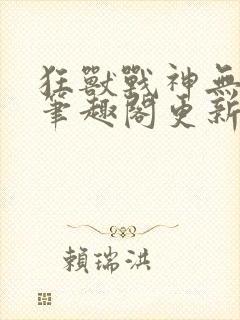 狂獸戰神無
筆趣閣更新
賴瑞洪